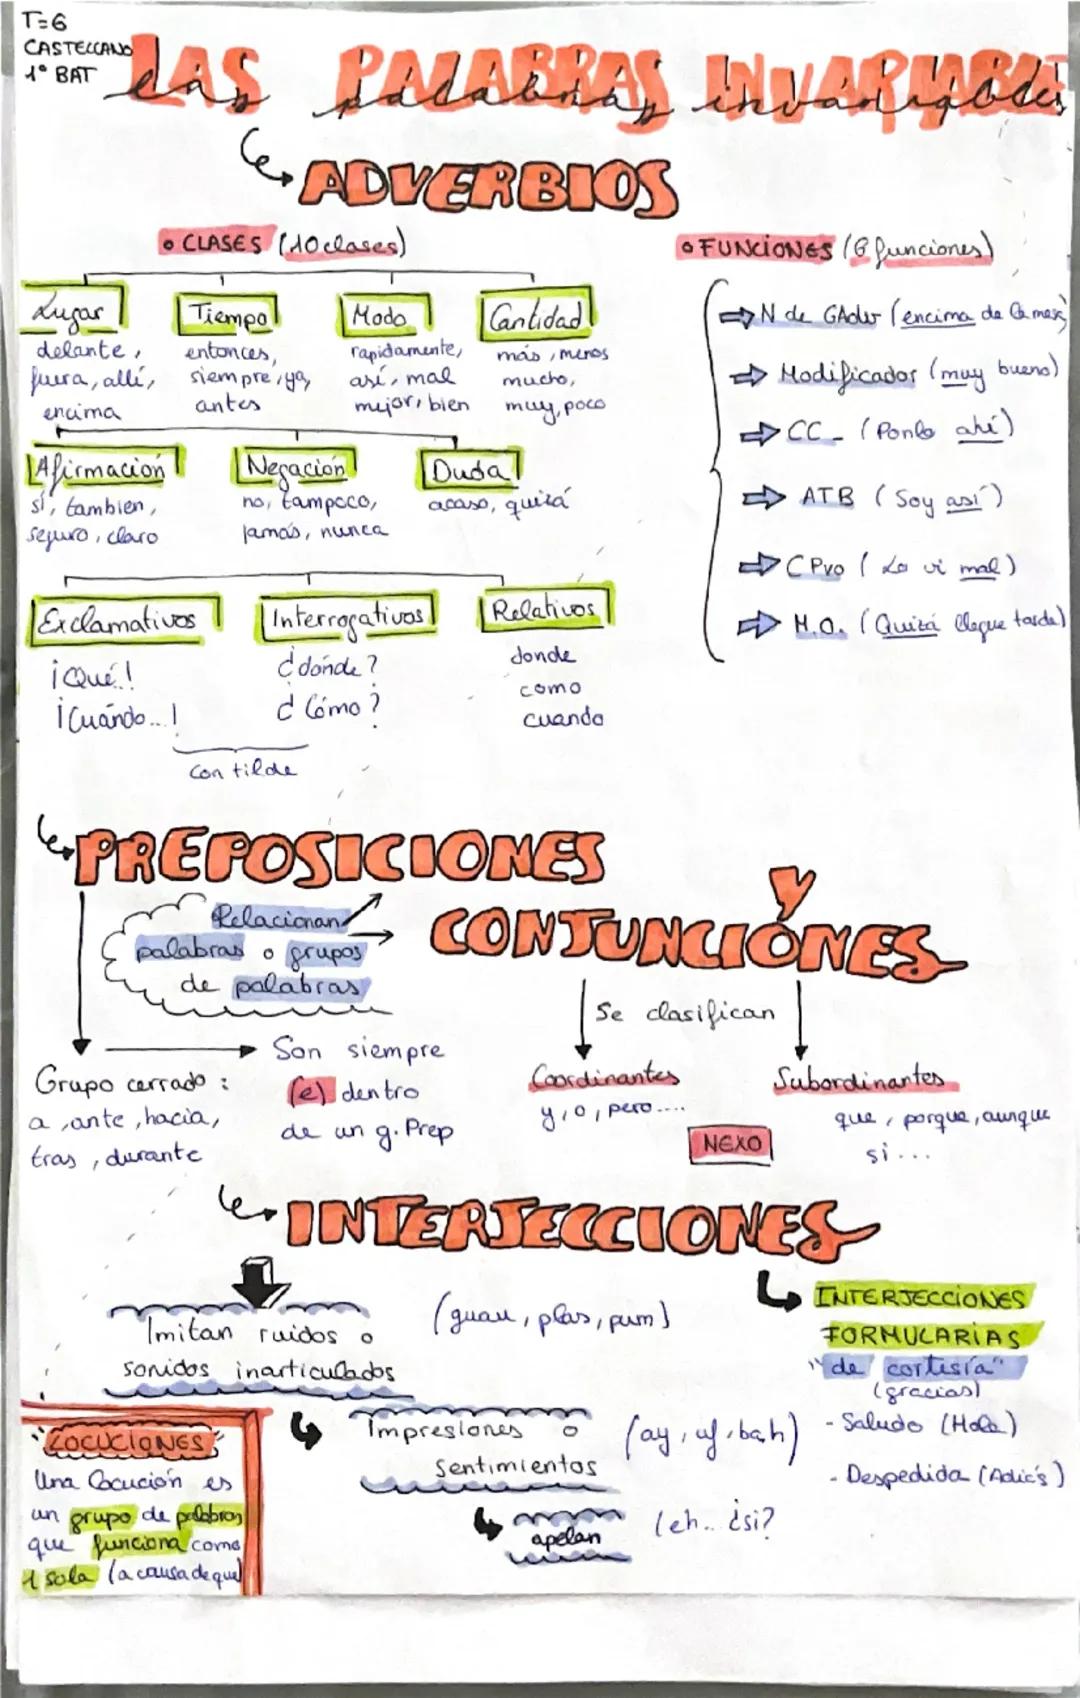 T=6
CASTELLANO
1º BAT
LAS PALABRAS INVARIABLES
las palabras invariables
ADVERBIOS
• CLASES (10 clases)
Lugar
delante,
fuera, allí,
encima
Tiempo
entonces,
siempre, ya,
antes
Modo
rapidamente,
así, mal
mejor, bien
Cantidad
más, menos
mucho,
muy, poco
Afirmación
sí, tambien,
seguro, claro
Negación
no, tampoco,
jamás, nunca
Duda
acaso, quizá
Exclamativos
¡Qué!
¡Cuándo...!
Interrogativos
¿dónde?
¿Cómo?
con tilde
Relativos
donde
como
cuando
• FUNCIONES (6 funciones)
N de GAdv (encima de la mesa)
Modificador (muy bueno)
CC - (Ponlo ahí)
ATB (Soy así)
CPvo (La vi mal)
M.O. (Quizá llegue tarde)
PREPOSICIONES
Y
CONJUNCIONES
Relacionan
palabras o grupos
de palabras
Grupo cerrado:
a, ante, hacia,
tras, durante
Son siempre
(e) dentro
de un g. Prep
Se clasifican
Coordinantes
y, o, pero....
NEXO
Subordinantes
que, porque, aunque
si...
INTERJECCIONES
Imitan ruidos o
sonidos inarticulados
(guau, plas, pum)
Impresiones o
sentimientos
(ay, uf, bah)
apelan
(eh.. ¿si?
INTERJECCIONES
FORMULARIAS
"de cortisía"
(gracias)
- Saludo (Hola)
- Despedida (Adiós)
LOCUCIONES
Una locución es
un grupo de palabras
que funciona como
1 sola (a causa de que)